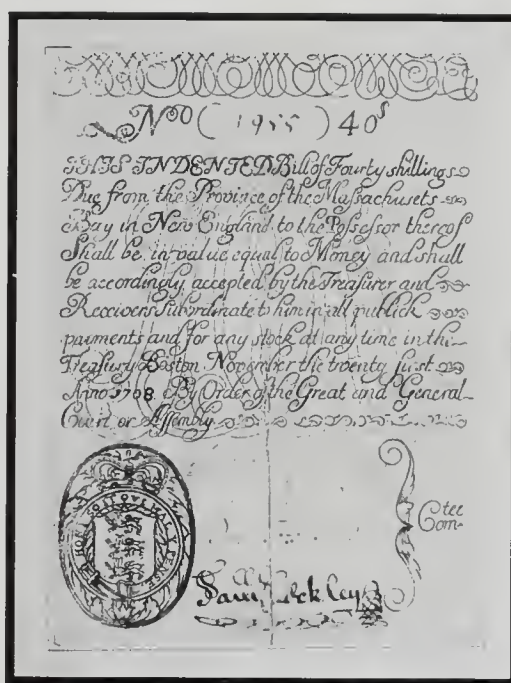 No ( 1955 ) 40s
THIS INDENTED Bill of Fourty shillings
Due from the Province of the Massachusets
Bay in New England to the Possessor thereof
Shall be in value equal to Money and shall
be accordingly accepted by the Treasurer and
Receivers Subordinate to him in all publick
paiments and for any stock at any time in the
Treasury Boston November the twenty first
Anno 1708 By Order of the Great and General
Court or Assembly
HONI SOIT QUI MAL Y PENSE
Com-tee